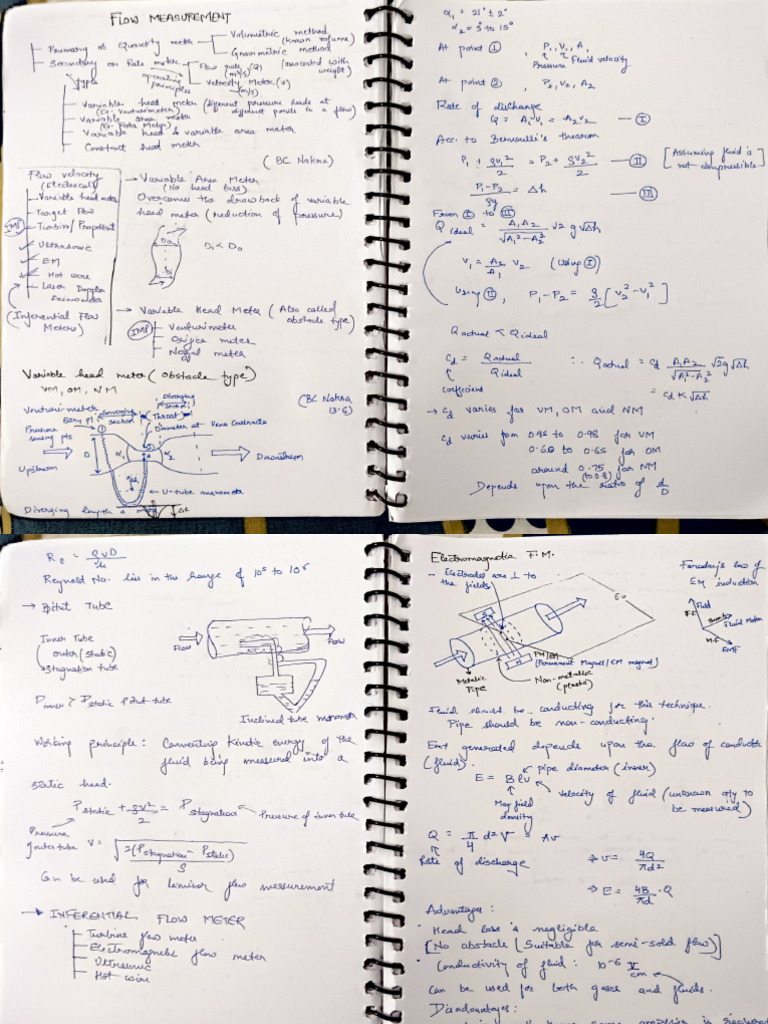 FLOW MEASUREMENT
Primary or Quantity meter
Volumetric method
(known volume)
Gravimetric method
Secondary or Rate meter
Flow rate (Q) (associated with
(m³/s) weight)
Velocity Meter (v)
(m/s)
types
operating
principles
Variable head meter (different pressure heads at
(Ex: Venturimeter) different points in a flow)
Variable area meter
(Ex: Rota Meter)
Variable head & variable area meter
Constant head meter
(BC Nakra)
Flow velocity
(Electrical)
Variable head meter
Target Flow
Turbine/Propellent
IMP
Ultrasonic
EM
Hot wire
Laser Doppler
Anemometer
(Inferential Flow
Meters)
→ Variable Area Meter
(No head loss)
Overcomes the drawback of variable
head meter (reduction of pressure)
D₁ < D₀
→ Variable Head Meter (Also called
obstacle type)
IMP
Venturimeter
Orifice meter
Nozzel meter
Variable head meter (obstacle type)
VM, OM, NM
(BC Nakra
13.6)
Venturimeter
Entry pt
Converging
section
Diverging
section
Throat
Diameter at Vena Contracta
Pressure
sensing pts
Upstream
D
α₁
α₂
Downstream
U-tube manometer
Δh
Diverging length is
α₁ = 21° ± 2°
α₂ = 5° to 15°
At point ① , P₁, V₁, A₁
Pressure Fluid velocity
At point ② , P₂, V₂, A₂
Rate of discharge
Q = A₁V₁ = A₂V₂ — Ⓘ
Acc. to Bernoulli's theorem
P₁ + ρV₁²/2 = P₂ + ρV₂²/2 — Ⅱ
[Assuming fluid is
not compressible]
P₁ - P₂/ρg = Δh — Ⅲ
From Ⓘ to Ⅲ
Q ideal = A₁A₂/√A₁²-A₂² √2g√Δh
V₁ = A₂/A₁ V₂ (Using Ⓘ)
Using Ⅱ , P₁-P₂ = ρ/2 [V₂² - V₁²]
Qactual < Qideal
Cd = Qactual/Qideal ∴ Qactual = Cd A₁A₂/√A₁²-A₂² √2g√Δh
coefficient = Cd K√Δh
→ Cd varies for VM, OM and NM
Cd varies from 0.95 to 0.98 for VM
0.60 to 0.65 for OM
around 0.75 for NM
(to 0.8)
Depends upon the ratio of d/D
Re = ρvD/μ
Reynold No. lies in the range of 10⁵ to 10⁶
→ Pitot Tube
Inner Tube
outer (static)
Stagnation tube
Flow
Flow
Pinner > Pstatic Pitot tube
Inclined tube manometer
Working principle: Converting Kinetic energy of the
fluid being measured into a
static head.
Pstatic + ρv²/2 = Pstagnation
Pressure of inner tube
Pressure
outer tube
v = √2(Pstagnation - Pstatic)/ρ
Can be used for laminar flow measurement
→ INFERENTIAL FLOW METER
Turbine flow meter
Electromagnetic flow meter
Ultrasonic
Hot wire
Electromagnetic F.M.
- Electrodes are ⊥ to
the fields
Faraday's law of
EM induction
Field
Thumb
Fluid Motion
M.F
EMF
PM/EM
(Permanent Magnet/EM magnet)
Metallic
Pipe
Non-metallic
(plastic)
Fluid should be conducting for this technique.
Pipe should be non-conducting.
Emf generated depends upon the flow of conductor
(fluid).
pipe diameter (inner)
E = Blv
Mag field
density
velocity of fluid (unknown qty to
be measured)
Q = π/4 d²V = Av
Rate of discharge
⇒ v = 4Q/πd²
⇒ E = 4B/πd . Q
Advantages:
· Head loss is negligible
[No obstacle (Suitable for semi-solid flow)]
· Conductivity of fluid : 10⁻⁶ ℧/cm
Can be used for both gases and fluids.
Disadvantages: